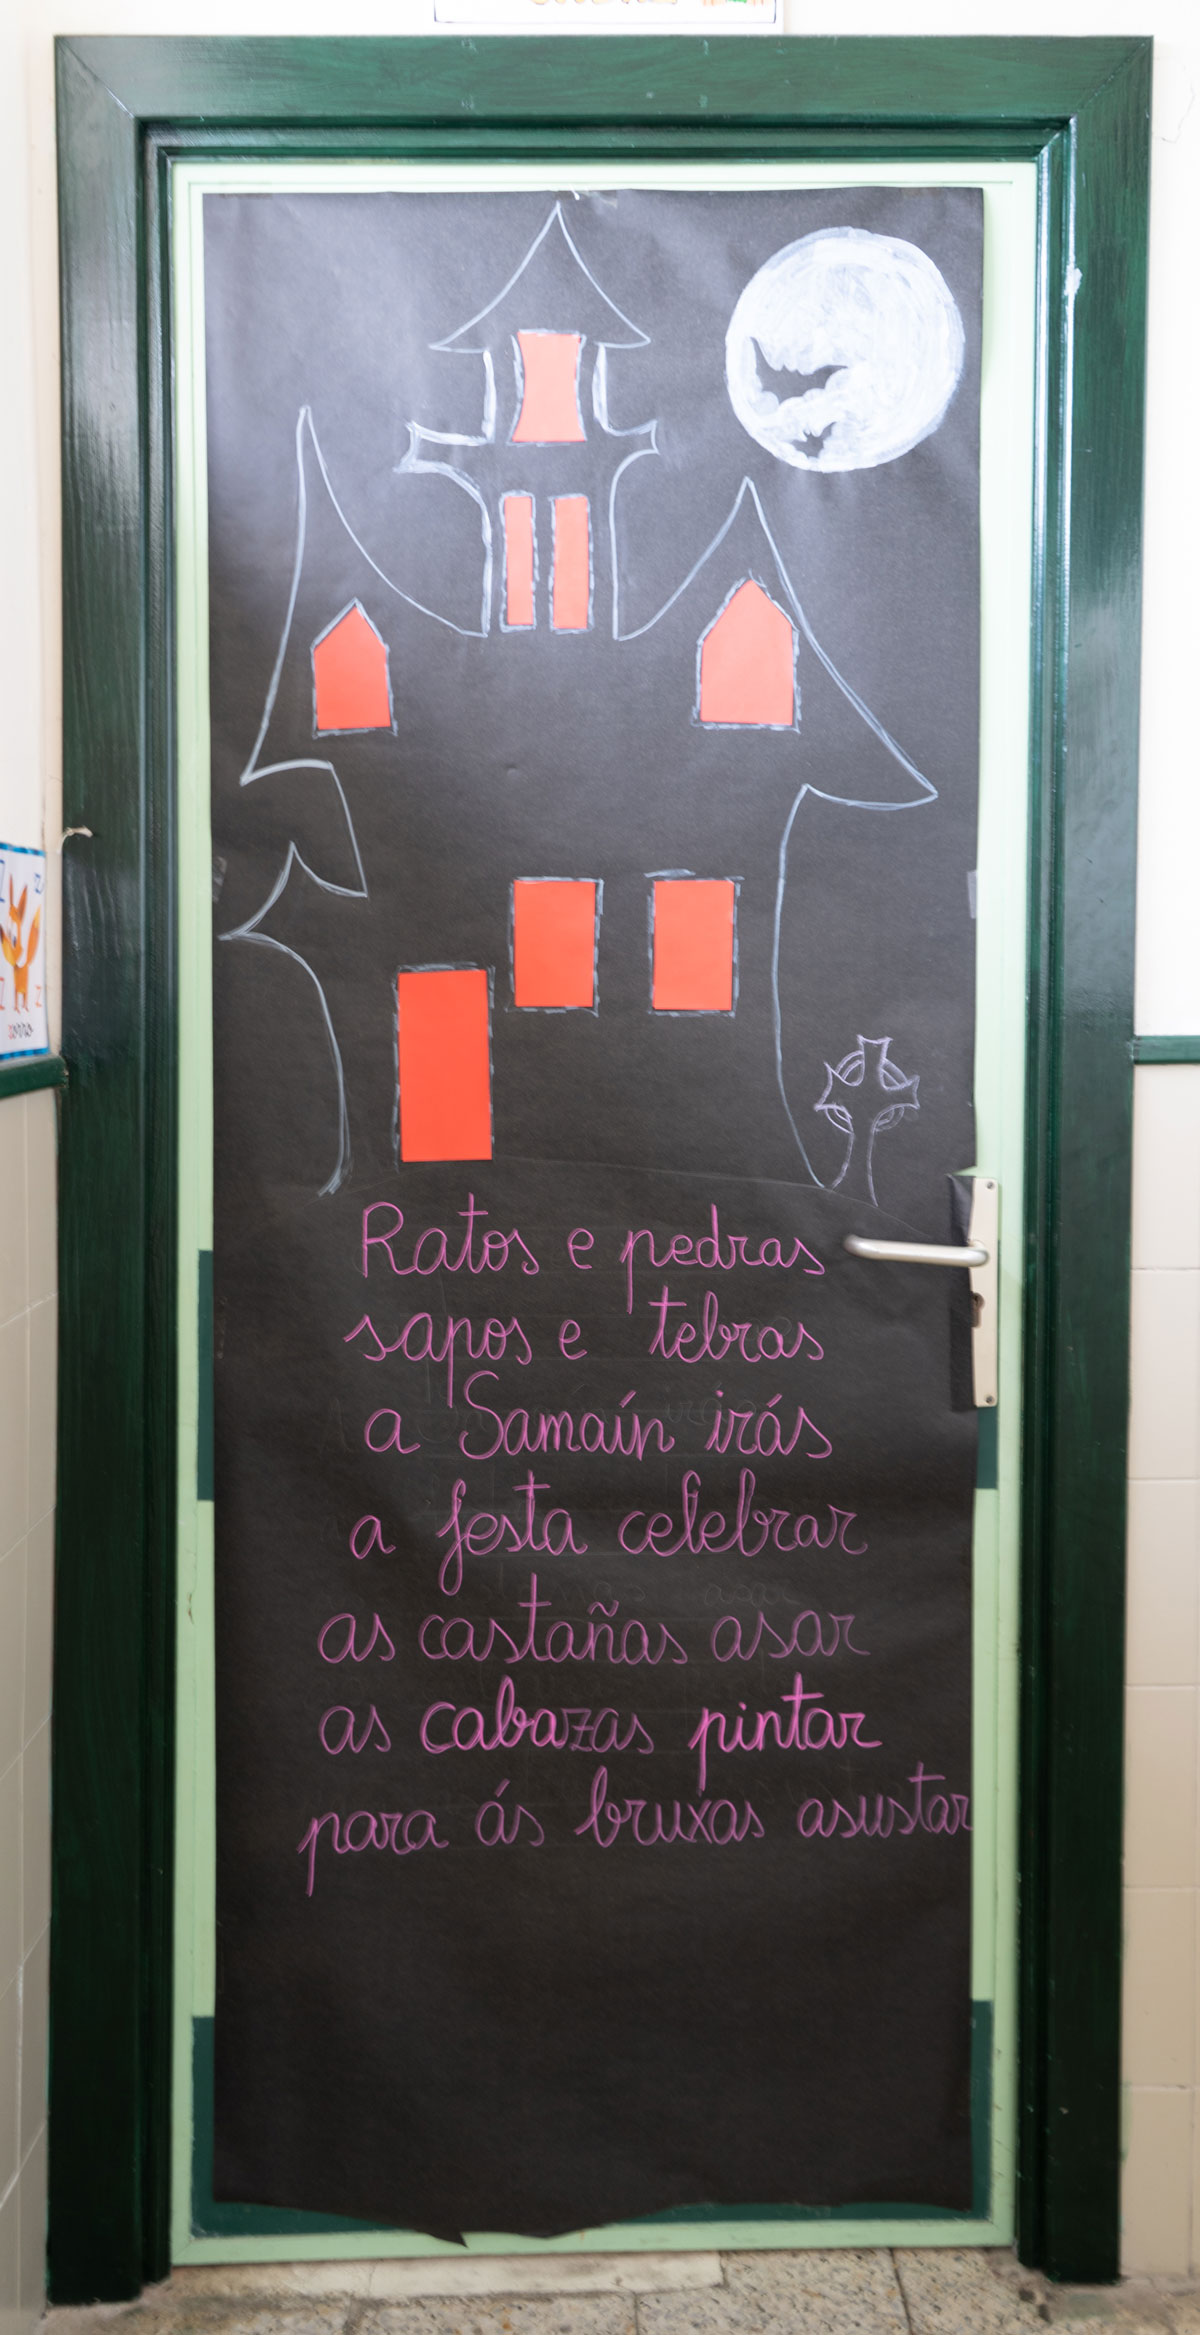 Ratos e pedras
sapos e tebras
a Samaín irás
a festa celebrar
as castañas asar
as cabazas pintar
para ás bruxas asustar
zorro